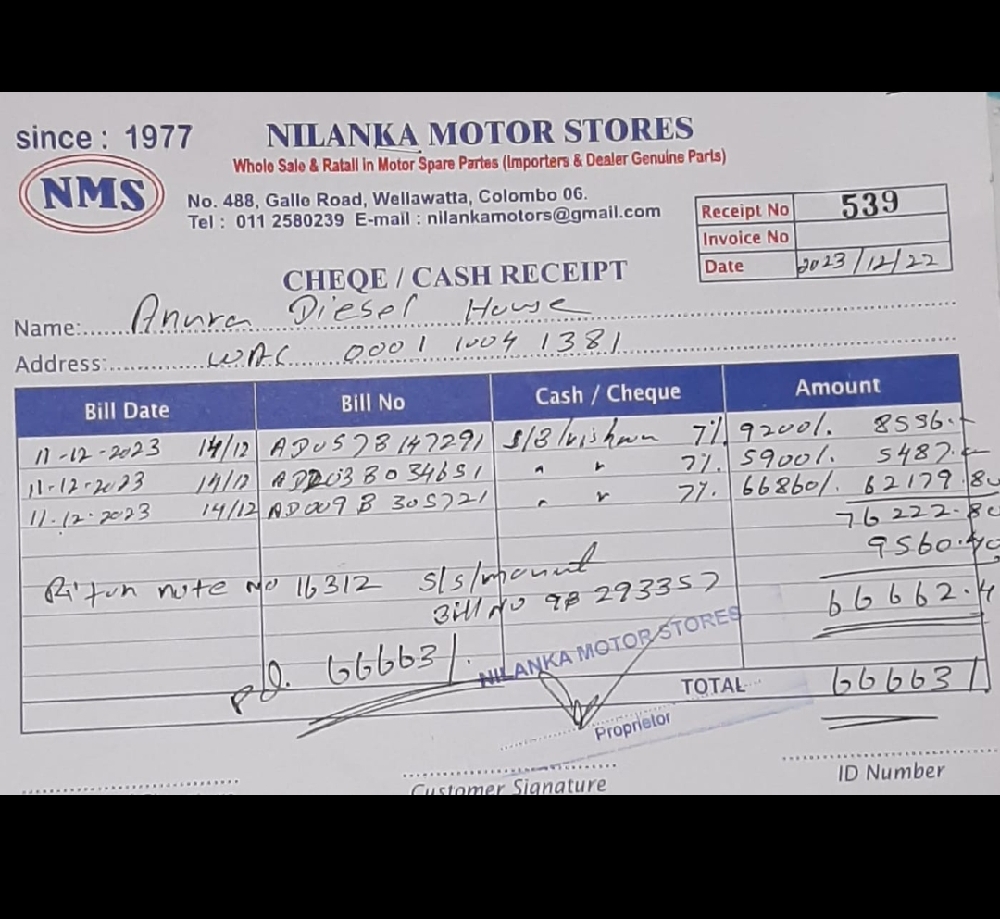 since : 1977
NILANKA MOTOR STORES
Whole Sale & Ratall in Motor Spare Partes (Importers & Dealer Genuine Parts)
NMS
No. 488, Galle Road, Wellawatta, Colombo 06.
Tel : 011 2580239 E-mail : nilankamotors@gmail.com
Receipt No 539
Invoice No
Date 2023/12/22
CHEQE / CASH RECEIPT
Name: Anura Diesel House
Address: WAC 0001 1004 1381
Bill Date Bill No Cash / Cheque Amount
11-12-2023 14/12 AD057B147291 7% 9200/. 8556.
11-12-2023 14/12 034651 7%. 5900/. 5487.
11.12.2023 14/12 AD009 B 305721 7%. 66860/. 62179.80
76222.80
9560.40
note No 16312 S/S/mount
Bill No 9B 293357
66662.4
66663/.
NILANKA MOTOR STORES
TOTAL 66663/.
Proprietor
Customer Signature
ID Number